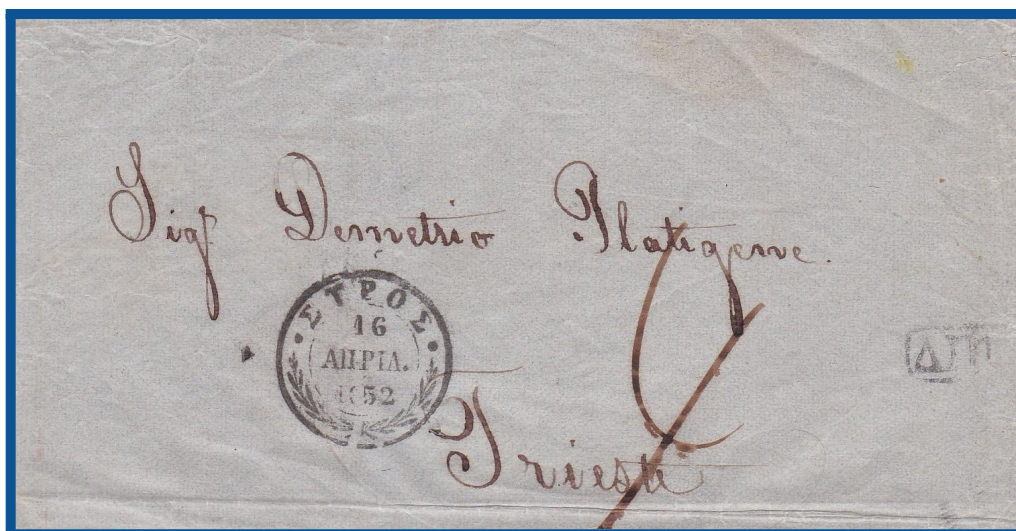 Sigr Demetrio Platigene.
ΣΥΡΟΣ
16
ΑΠΡΙΛ.
1852
Trieste
Δ